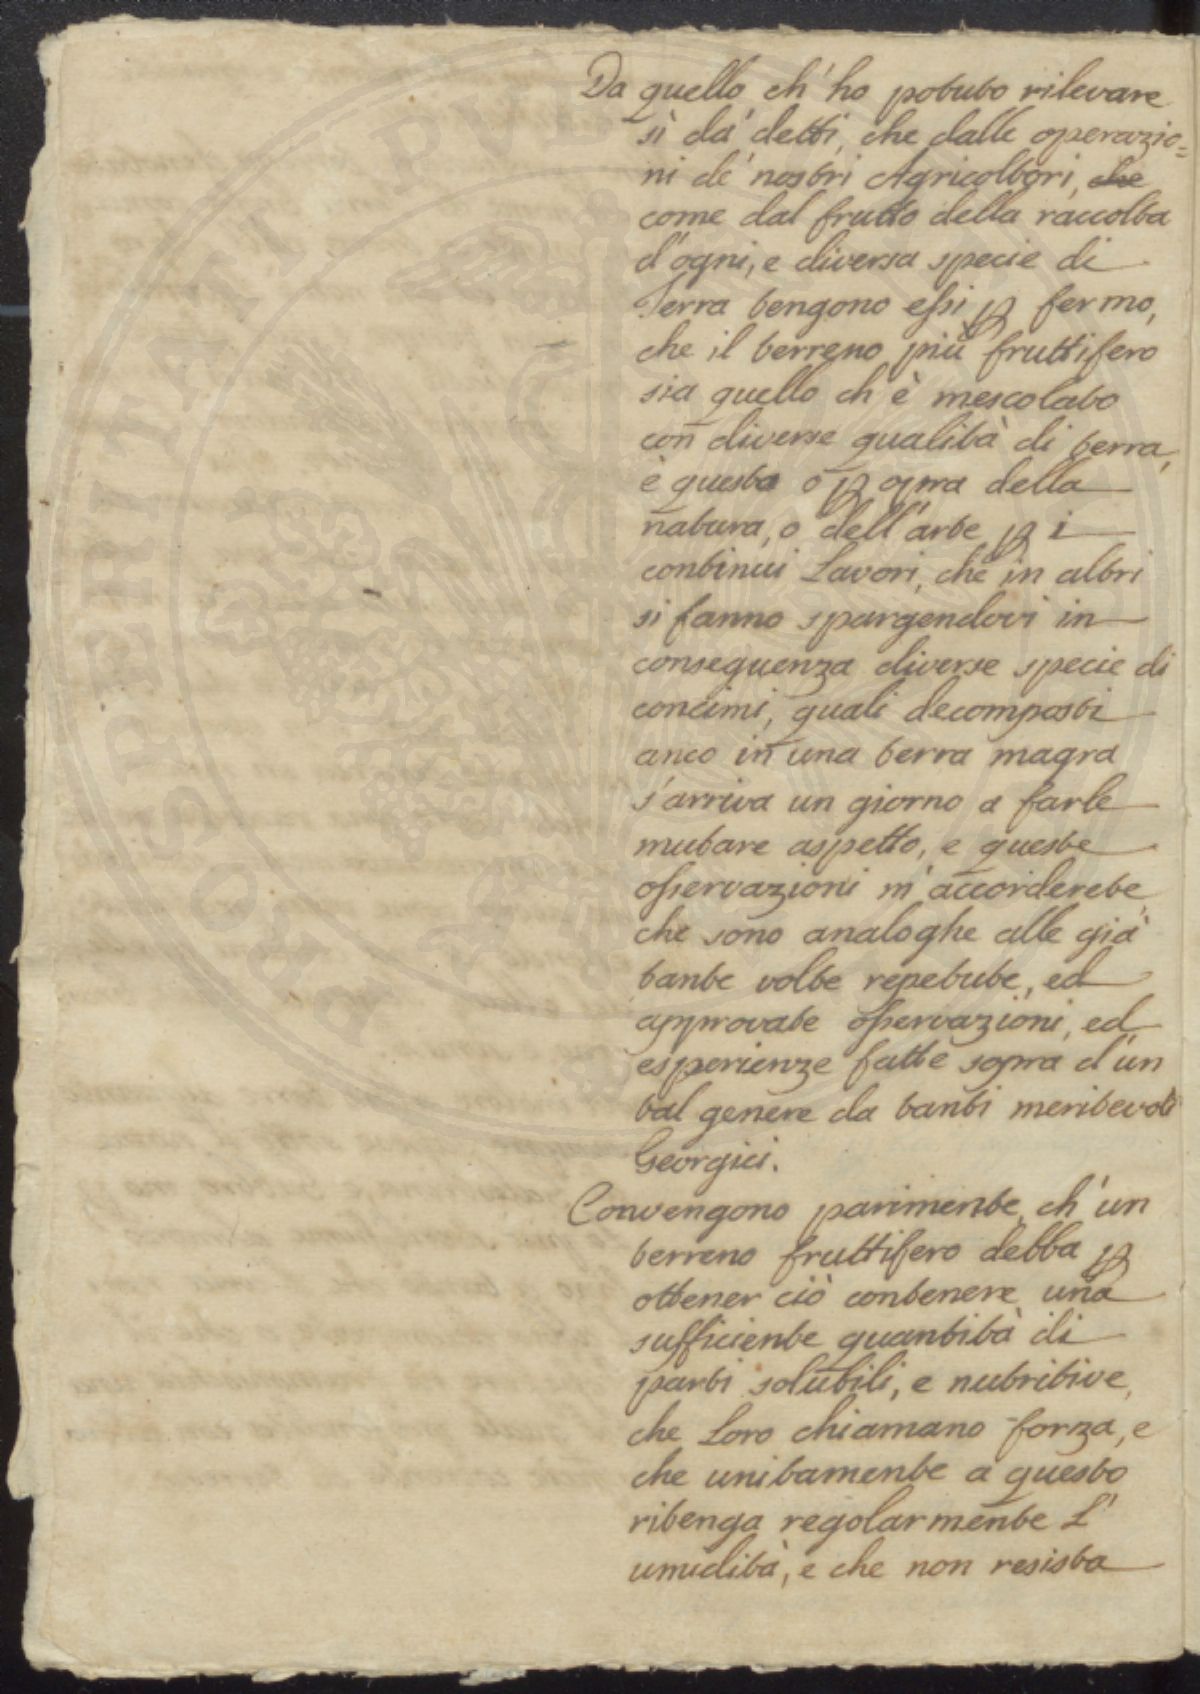 Da quello ch'ho potuto rilevare
sì da' detti, che dalle operazio=
ni de' nostri Agricoltori, che
come dal frutto della raccolta
d'ogni, e diversa specie di
Terra tengono essi ꝑ fermo,
che il terreno più fruttifero
sia quello ch'è mescolato
con diverse qualità di terra,
e questa o ꝑ opra della
natura, o dell'arte ꝑ i
continui Lavori, che in altri
si fanno spargendovi in
conseguenza diverse specie di
concimi, quali decomposti
anco in una terra magra
s'arriva un giorno a farle
mutare aspetto, e queste
osservazioni m'accorderete
che sono analoghe alle già
tante volte repetute, ed
approvate osservazioni, ed
esperienze fatte sopra d'un
tal genere da tanti meritevoli
Georgici.
Convengono parimente, ch'un
terreno fruttifero debba ꝑ
ottener ciò contenere una
sufficiente quantità di
parti solubili, e nutritive,
che Loro chiamano forza, e
che unitamente a questo
ritenga regolarmente L'
umidità, e che non resista
PROSPERITATI PVBL